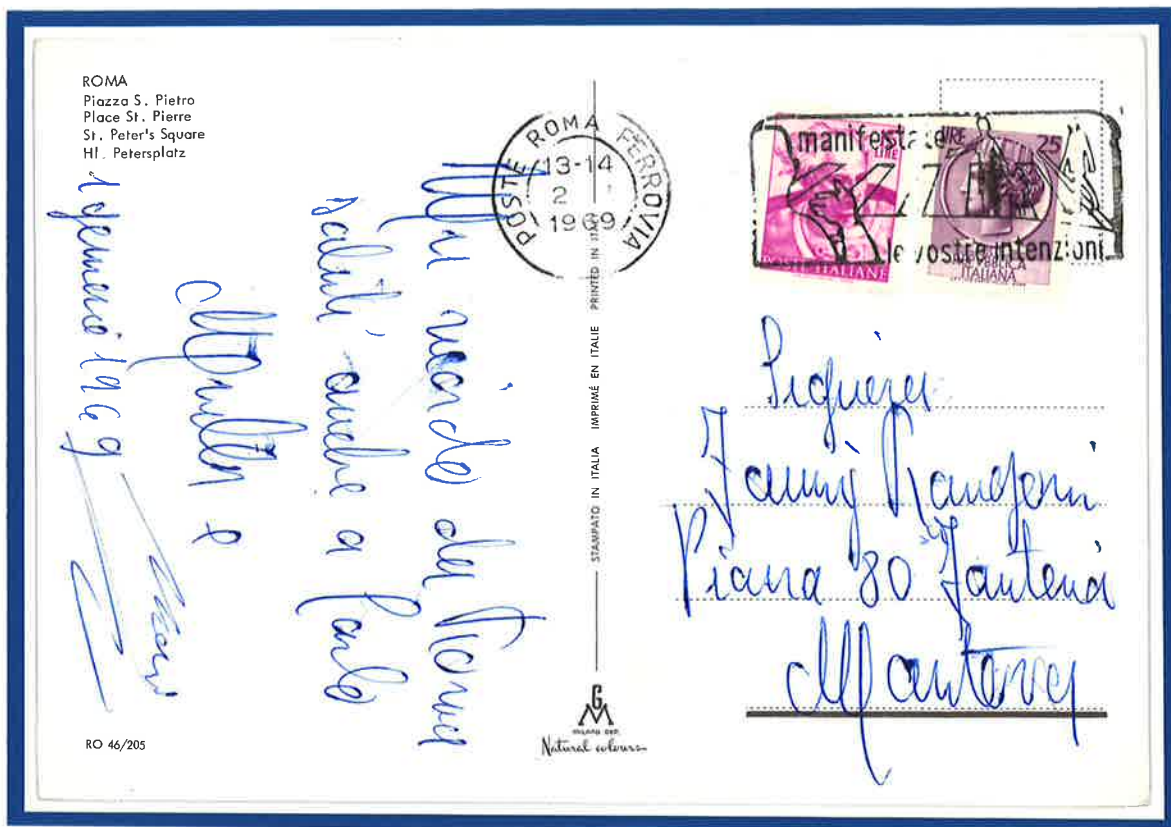 ROMA
Piazza S. Pietro
Place St. Pierre
St. Peter's Square
Hl. Petersplatz
Un ricordo da Roma
saluti anche a Carlo
1 gennaio 1969
RO 46/205
POSTE ROMA FERROVIA
13-14
2
1969
STAMPATO IN ITALIA IMPRIMÉ EN ITALIE PRINTED IN ITALY
GM
MILANO DEP.
Natural colours
manifestate
le vostre intenzioni
LIRE
POSTE ITALIANE
LIRE 25
ITALIANA
Signora
Fanny
Piazza 80 Fanteria
Mantova